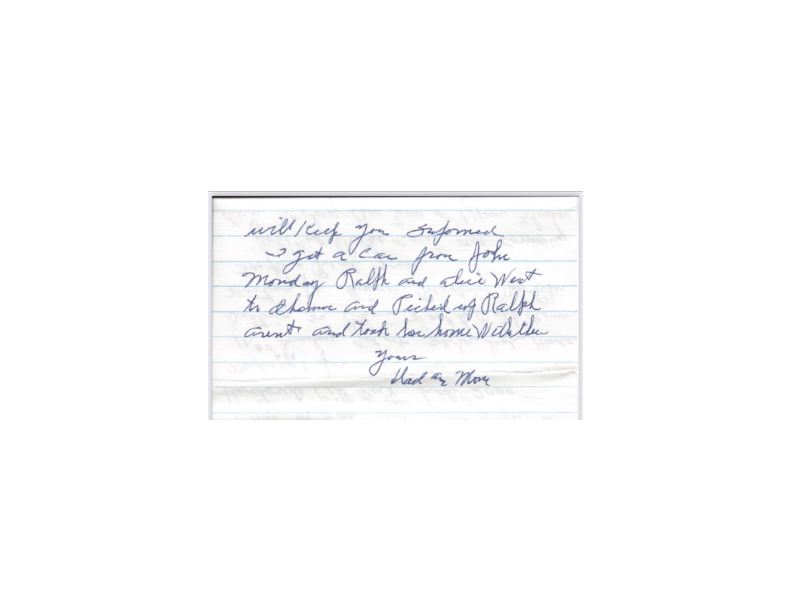 will Keep you informed
I got a Car from John
Monday Ralph and alice West
to and Picked up Ralph
aunt and took her home With
Yours
Dad an Mom